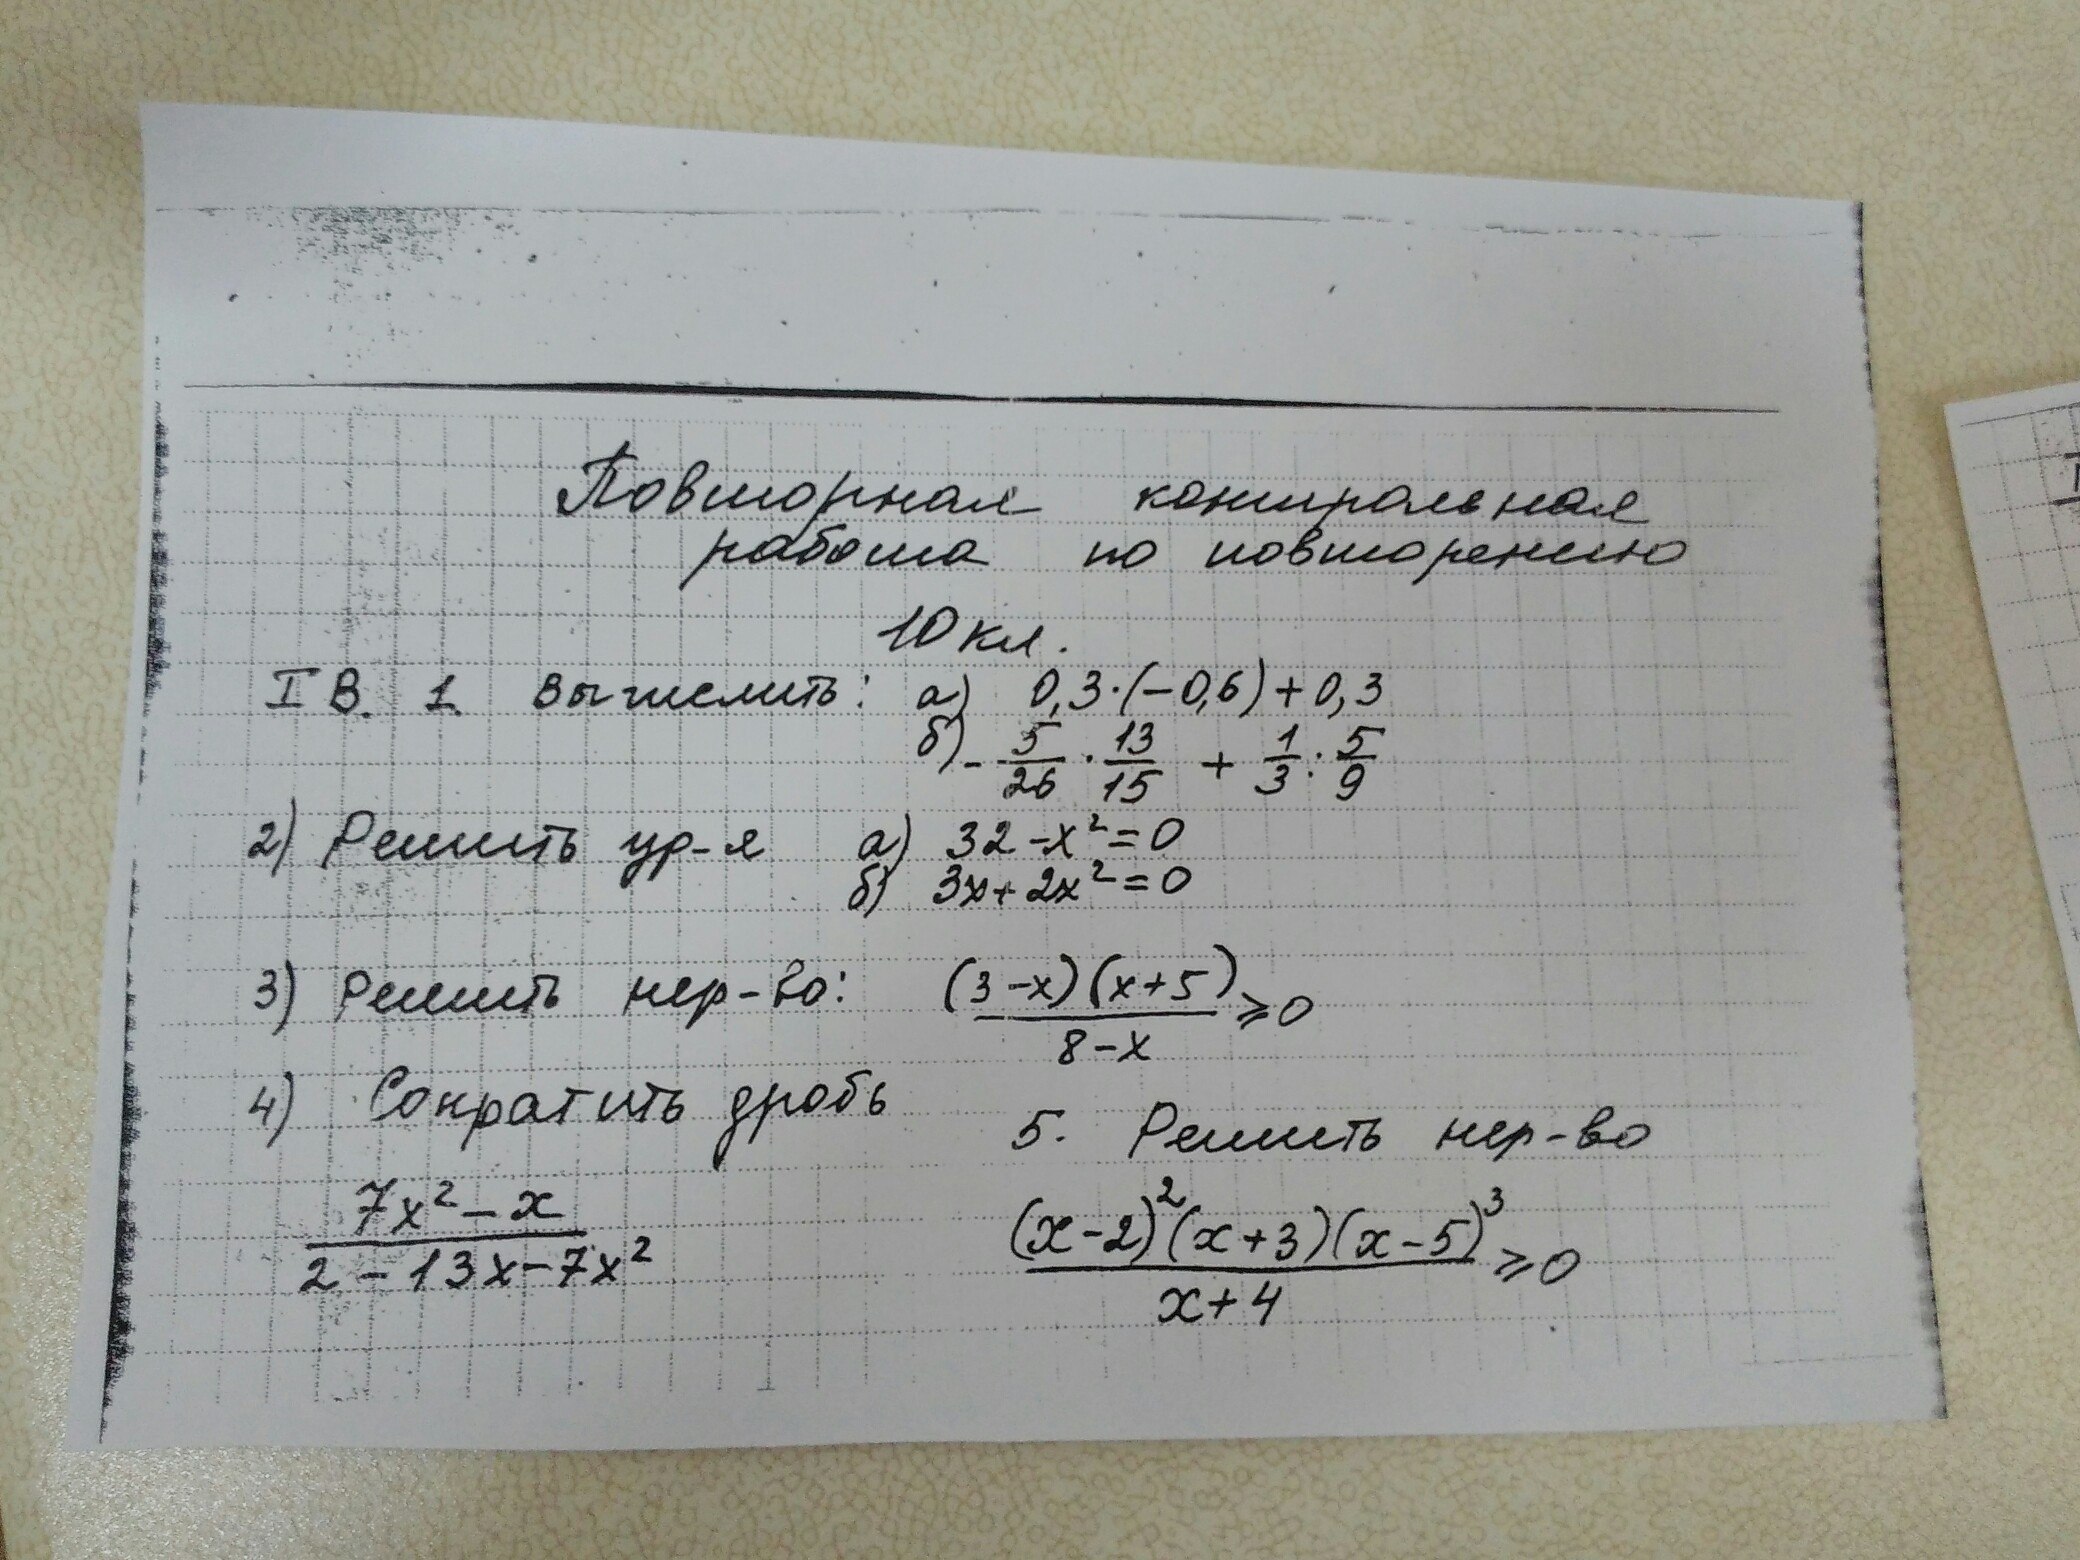 Повторная контрольная
работа по повторению
10 кл.
I В. 1. Вычислить: а) 0,3·(-0,6)+0,3
б) -5/26 · 13/15 + 1/3 : 5/9
2) Решить ур-я а) 32-x²=0
б) 3x+2x²=0
3) Решить нер-во: (3-x)(x+5)/8-x ≥0
4) Сократить дробь
7x²-x
2-13x-7x²
5. Решить нер-во
(x-2)²(x+3)(x-5)³/x+4 ≥0